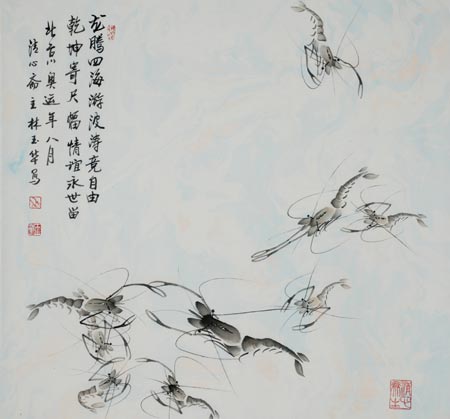 龙腾四海游波涛竞自由
乾坤寄尺幅情谊永世留
北京奥运年八月
清心斋主林玉华写